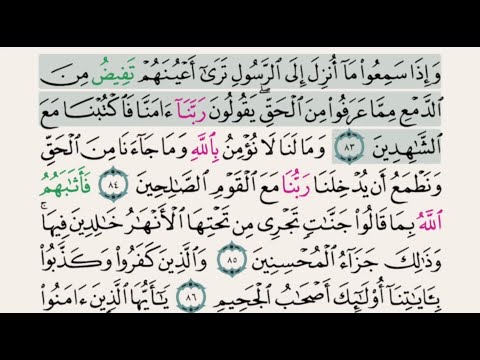 وَإِذَا سَمِعُوا۟ مَآ أُنزِلَ إِلَى ٱلرَّسُولِ تَرَىٰٓ أَعْيُنَهُمْ تَفِيضُ مِنَ
ٱلدَّمْعِ مِمَّا عَرَفُوا۟ مِنَ ٱلْحَقِّ ۖ يَقُولُونَ رَبَّنَآ ءَامَنَّا فَٱكْتُبْنَا مَعَ
ٱلشَّٰهِدِينَ ٨٣ وَمَا لَنَا لَا نُؤْمِنُ بِٱللَّهِ وَمَا جَآءَنَا مِنَ ٱلْحَقِّ
وَنَطْمَعُ أَن يُدْخِلَنَا رَبُّنَا مَعَ ٱلْقَوْمِ ٱلصَّٰلِحِينَ ٨٤ فَأَثَٰبَهُمُ
ٱللَّهُ بِمَا قَالُوا۟ جَنَّٰتٍ تَجْرِى مِن تَحْتِهَا ٱلْأَنْهَٰرُ خَٰلِدِينَ فِيهَا ۚ
وَذَٰلِكَ جَزَآءُ ٱلْمُحْسِنِينَ ٨٥ وَٱلَّذِينَ كَفَرُوا۟ وَكَذَّبُوا۟
بِـَٔايَٰتِنَآ أُو۟لَٰٓئِكَ أَصْحَٰبُ ٱلْجَحِيمِ ٨٦ يَٰٓأَيُّهَا ٱلَّذِينَ ءَامَنُوا۟